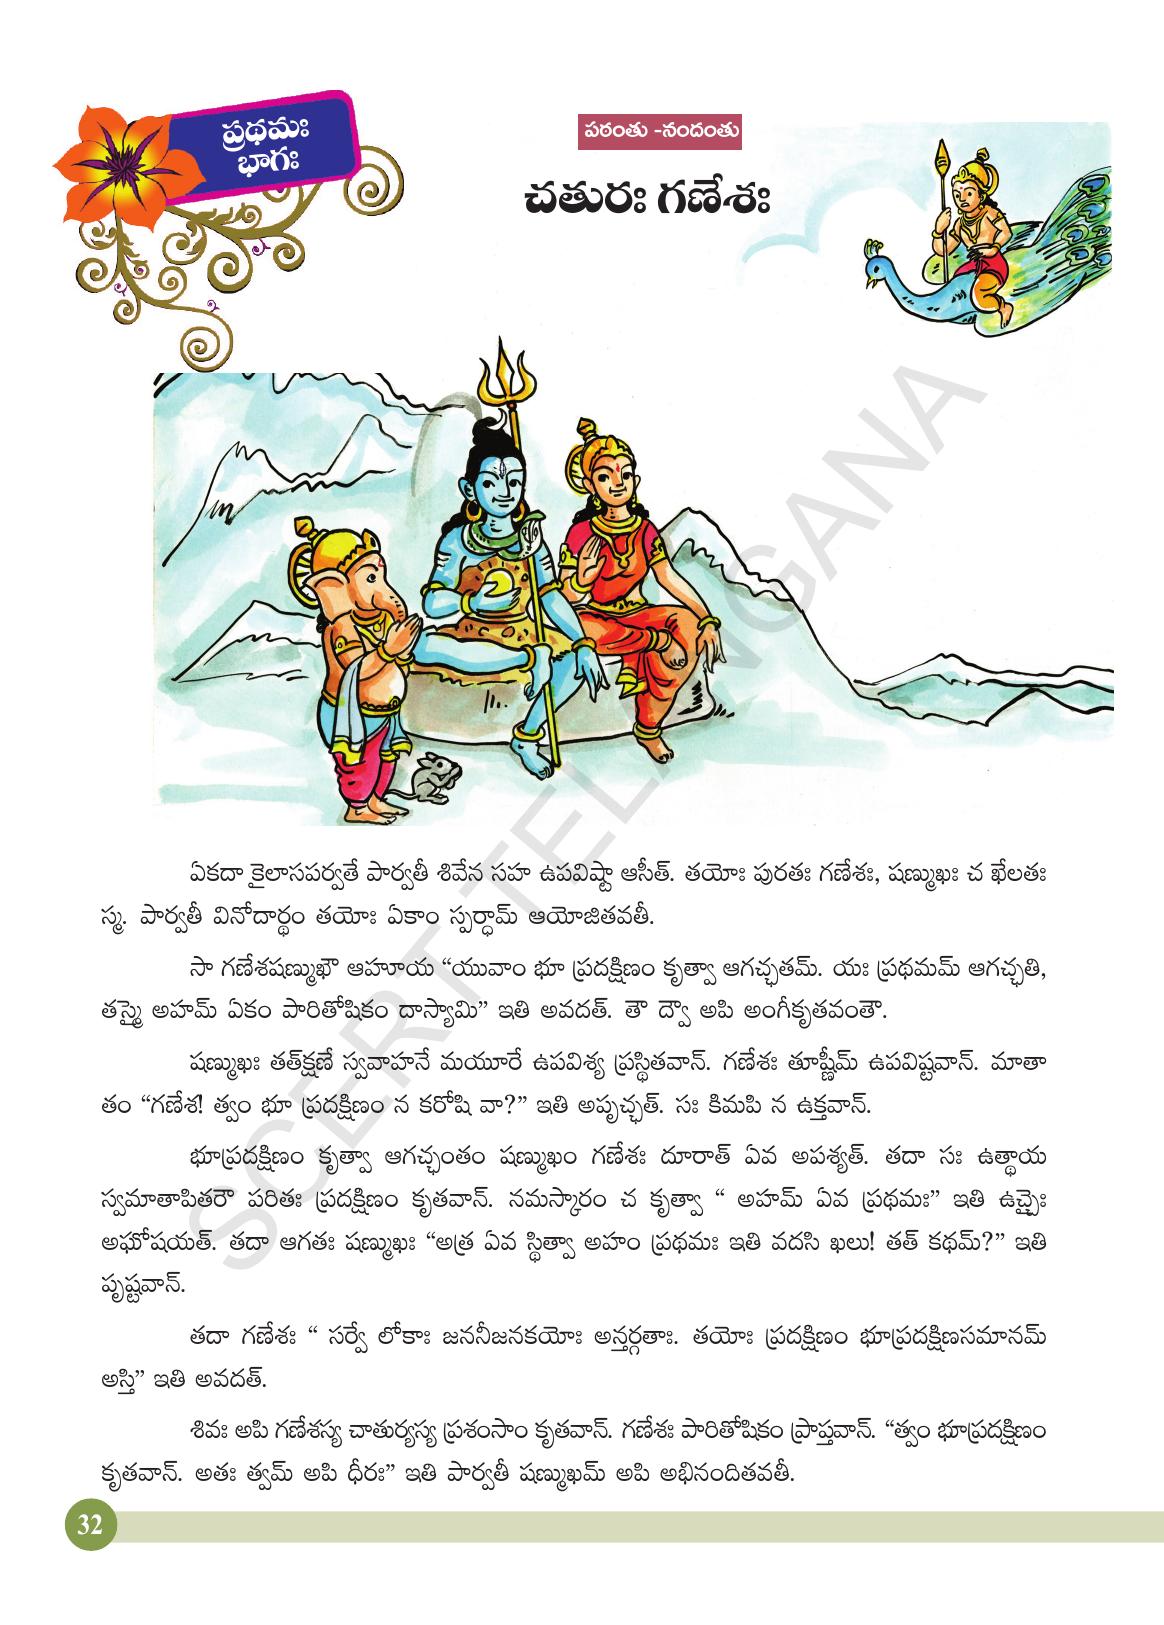 ప్రథమః
భాగః
పఠంతు -నందంతు
చతురః గణేశః
ఏకదా కైలాసపర్వతే పార్వతీ శివేన సహ ఉపవిష్టా ఆసీత్. తయోః పురతః గణేశః, షణ్ముఖః చ ఖేలతః
స్మ. పార్వతీ వినోదార్థం తయోః ఏకాం స్పర్ధామ్ ఆయోజితవతీ.
సా గణేశషణ్ముఖౌ ఆహూయ “యువాం భూ ప్రదక్షిణం కృత్వా ఆగచ్ఛతమ్. యః ప్రథమమ్ ఆగచ్ఛతి,
తస్మై అహమ్ ఏకం పారితోషికం దాస్యామి” ఇతి అవదత్. తౌ ద్వౌ అపి అంగీకృతవంతౌ.
షణ్ముఖః తత్‌క్షణే స్వవాహనే మయూరే ఉపవిశ్య ప్రస్థితవాన్. గణేశః తూష్ణీమ్ ఉపవిష్టవాన్. మాతా
తం “గణేశ! త్వం భూ ప్రదక్షిణం న కరోషి వా?” ఇతి అపృచ్ఛత్. సః కిమపి న ఉక్తవాన్.
భూప్రదక్షిణం కృత్వా ఆగచ్ఛంతం షణ్ముఖం గణేశః దూరాత్ ఏవ అపశ్యత్. తదా సః ఉత్థాయ
స్వమాతాపితరౌ పరితః ప్రదక్షిణం కృతవాన్. నమస్కారం చ కృత్వా “ అహమ్ ఏవ ప్రథమః” ఇతి ఉచ్చైః
అఘోషయత్. తదా ఆగతః షణ్ముఖః “అత్ర ఏవ స్థిత్వా అహం ప్రథమః ఇతి వదసి ఖలు! తత్ కథమ్?” ఇతి
పృష్టవాన్.
తదా గణేశః “ సర్వే లోకాః జననీజనకయోః అన్తర్గతాః. తయోః ప్రదక్షిణం భూప్రదక్షిణసమానమ్
అస్తి” ఇతి అవదత్.
శివః అపి గణేశస్య చాతుర్యస్య ప్రశంసాం కృతవాన్. గణేశః పారితోషికం ప్రాప్తవాన్. “త్వం భూప్రదక్షిణం
కృతవాన్. అతః త్వమ్ అపి ధీరః” ఇతి పార్వతీ షణ్ముఖమ్ అపి అభినందితవతీ.
32
SCERT TELANGANA